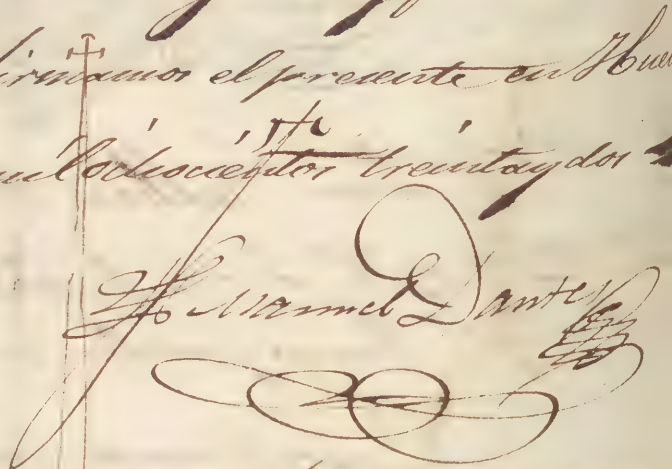 firmamos el presente en Hue
mil ochocientos treinta y dos
Manuel Dante